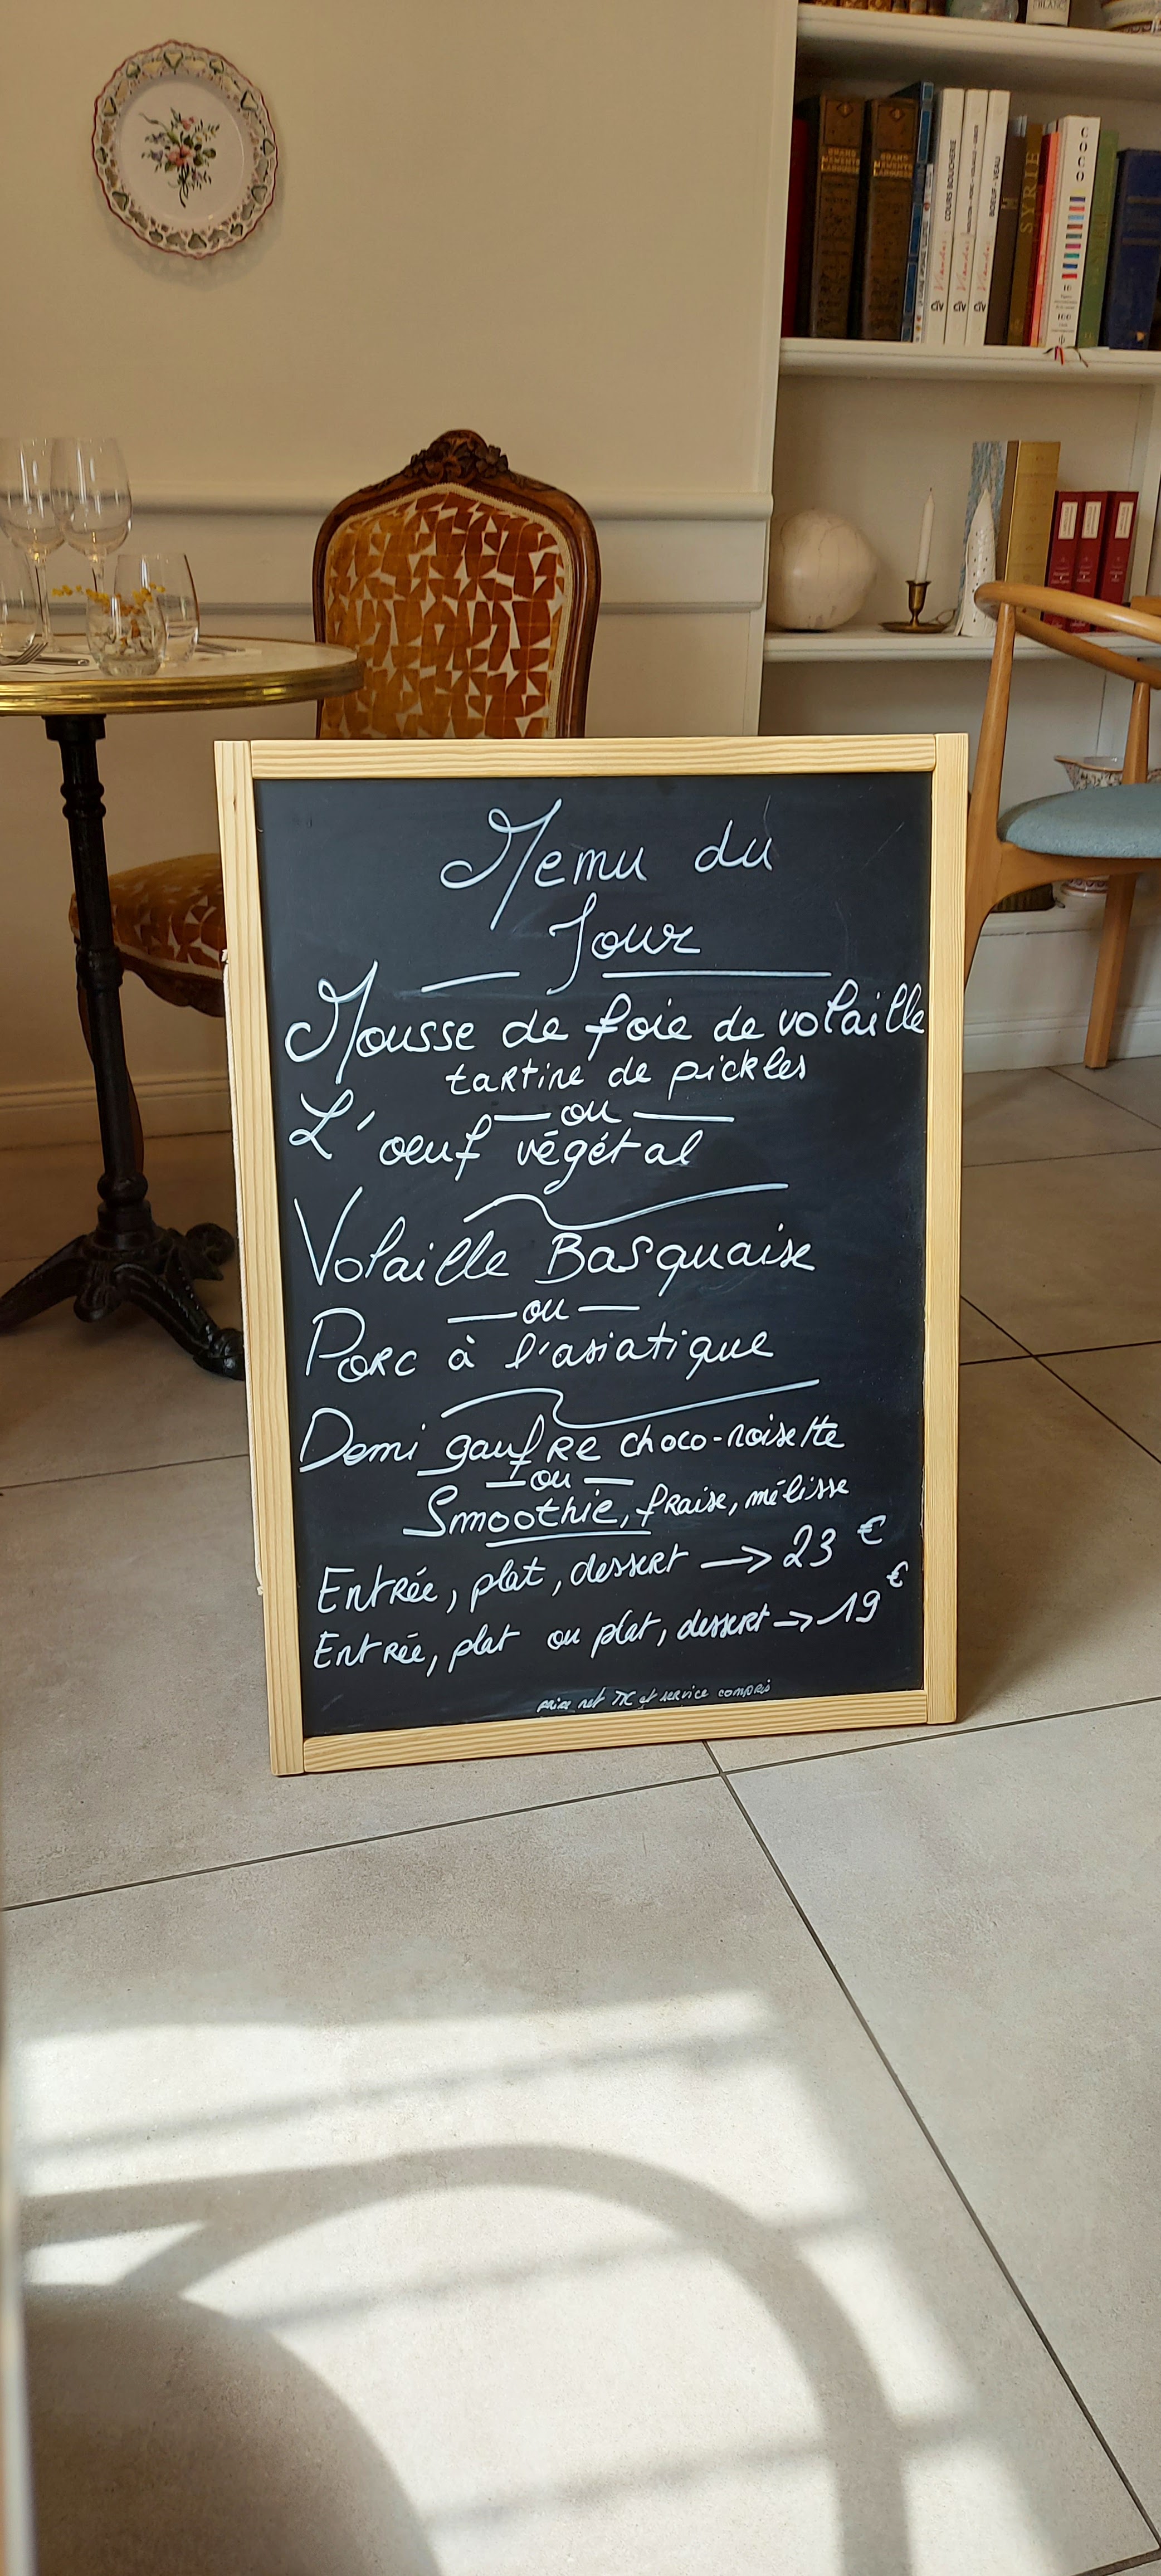 BLANC
GRAND
MEMENTO
LAROUSSE
GRAND
MEMENTO
LAROUSSE
Viandes COURS BOUCHERIE
Viandes
Viandes BOEUF - VEAU
SYRIE
COCO
Menu du
Jour
Mousse de foie de volaille
tartine de pickles
ou
L'oeuf végétal
Volaille Basquaise
ou
Porc à l'asiatique
Demi gaufre choco-noisette
ou
Smoothie, fraise, mélisse
Entrée, plat, dessert → 23 €
Entrée, plat ou plat, dessert → 19 €
prix net TTC et service compris